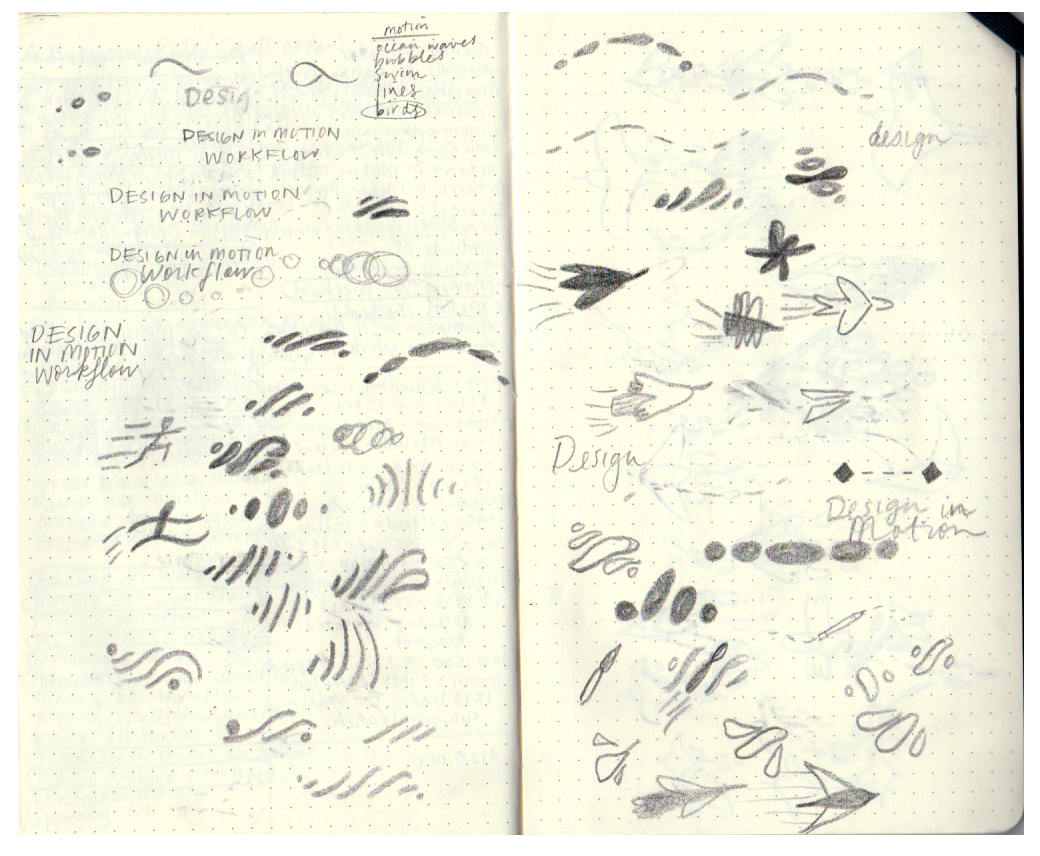 motion
ocean waves
bubbles
swim
lines
birds
Desig
DESIGN in MOTION
WORKFLOW
DESIGN IN MOTION
WORKFLOW
DESIGN in MOTION
Workflow
DESIGN
IN MOTION
Workflow
design
Design
Design in
Motion